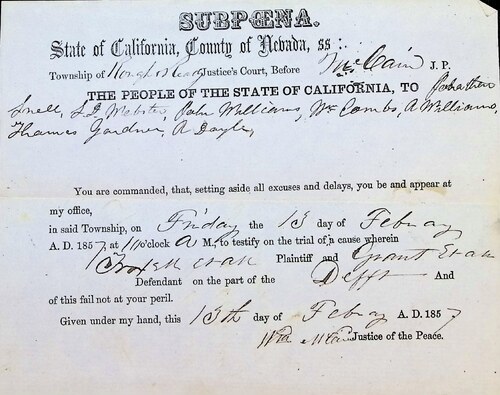 SUBPŒNA.
State of California, County of Nevada, ss :
Township of Rough & Ready Justice's Court, Before McCain J. P.
THE PEOPLE OF THE STATE OF CALIFORNIA, TO Johathan
Snell, Webster, John Williams, Combs, A Williams,
Thames Gardner, A Doyle,
You are commanded, that, setting aside all excuses and delays, you be and appear at
my office,
in said Township, on Friday the 13 day of Febuay
A. D. 1857, at o'clock A M., to testify on the trial of a cause wherein
Plaintiff and Grant
Defendant on the part of the Defft And
of this fail not at your peril.
Given under my hand, this 13th day of Febuay A. D. 1857
Wm McCain Justice of the Peace.